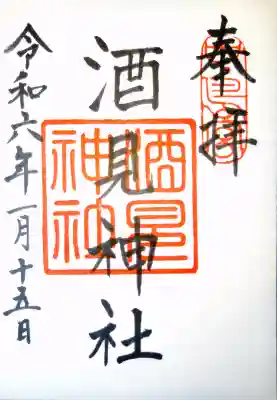 奉拝
酒見神社
酒見神社
令和六年一月十五日